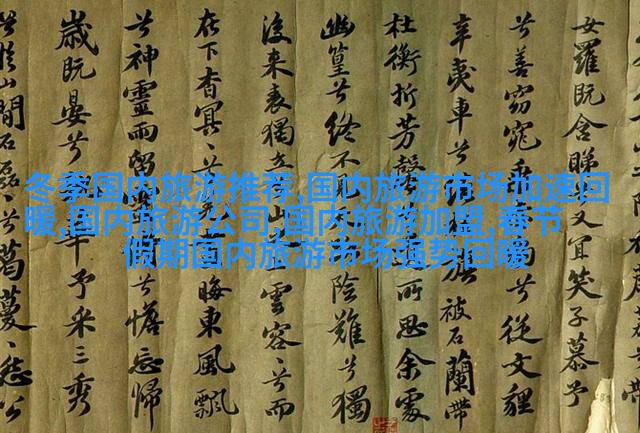 冬季国内旅游推荐,国内旅游市场加速回
暖,国内旅游公司,国内旅游加盟,春节
假期国内旅游市场强势回暖
女羅既含睇又宜笑子慕予
兮善窈窕乘兮從文貍
辛夷車兮旗被石蘭帶
杜衡折芳馨所思余處
幽篁兮終不陰難兮獨
後來表獨立山雲容容兮而
在下杳冥冥晦東風飄
兮神靈雨留兮憺忘歸
歲既晏兮華予采三秀
於山間石磊磊葛蔓蔓怨公